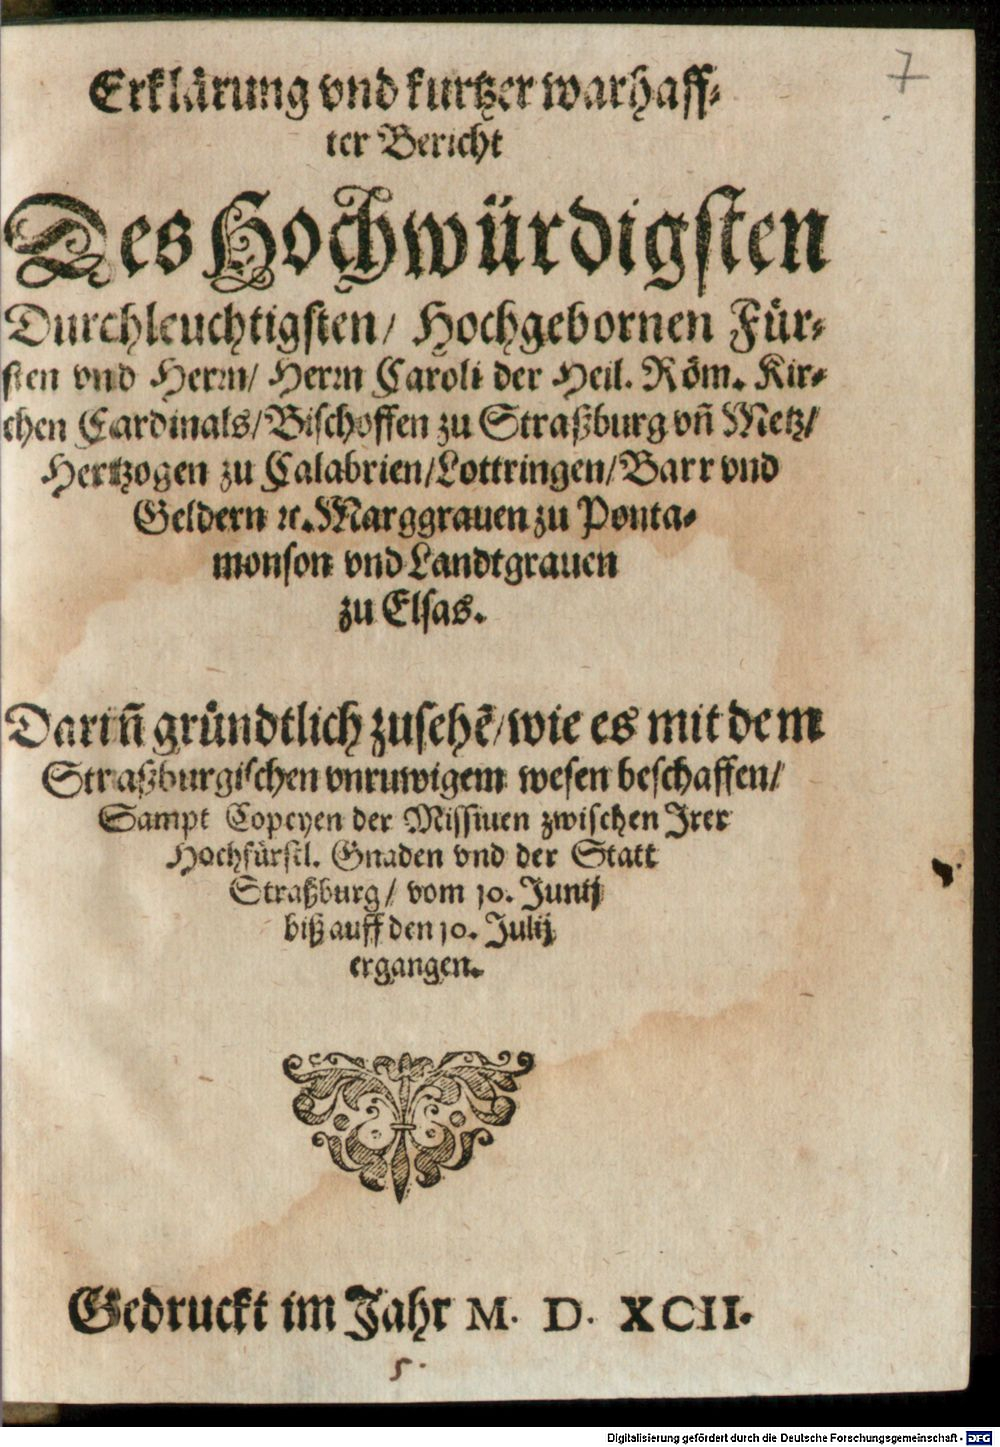 7
Erklärung vnd kurtzer warhaff-
ter Bericht
Des Hochwürdigsten
Durchleuchtigsten/ Hochgebornen Für-
sten vnd Herrn/ Herrn Caroli der Heil. Röm. Kir-
chen Cardinals/ Bischoffen zu Straßburg vñ Metz/
Hertzogen zu Calabrien/ Lottringen/ Barr vnd
Geldern ꝛc. Marggrauen zu Ponta-
monson vnd Landtgrauen
zu Elsas.
Dariñ gründtlich zusehē/ wie es mit dem
Straßburgischen vnruwigem wesen beschaffen/
Sampt Copeyen der Missiuen zwischen Irer
Hochfürstl. Gnaden vnd der Statt
Straßburg/ vom 10. Junij
biß auff den 10. Julij
ergangen.
Gedruckt im Jahr M. D. XCII.
5.
Digitalisierung gefördert durch die Deutsche Forschungsgemeinschaft - DFG